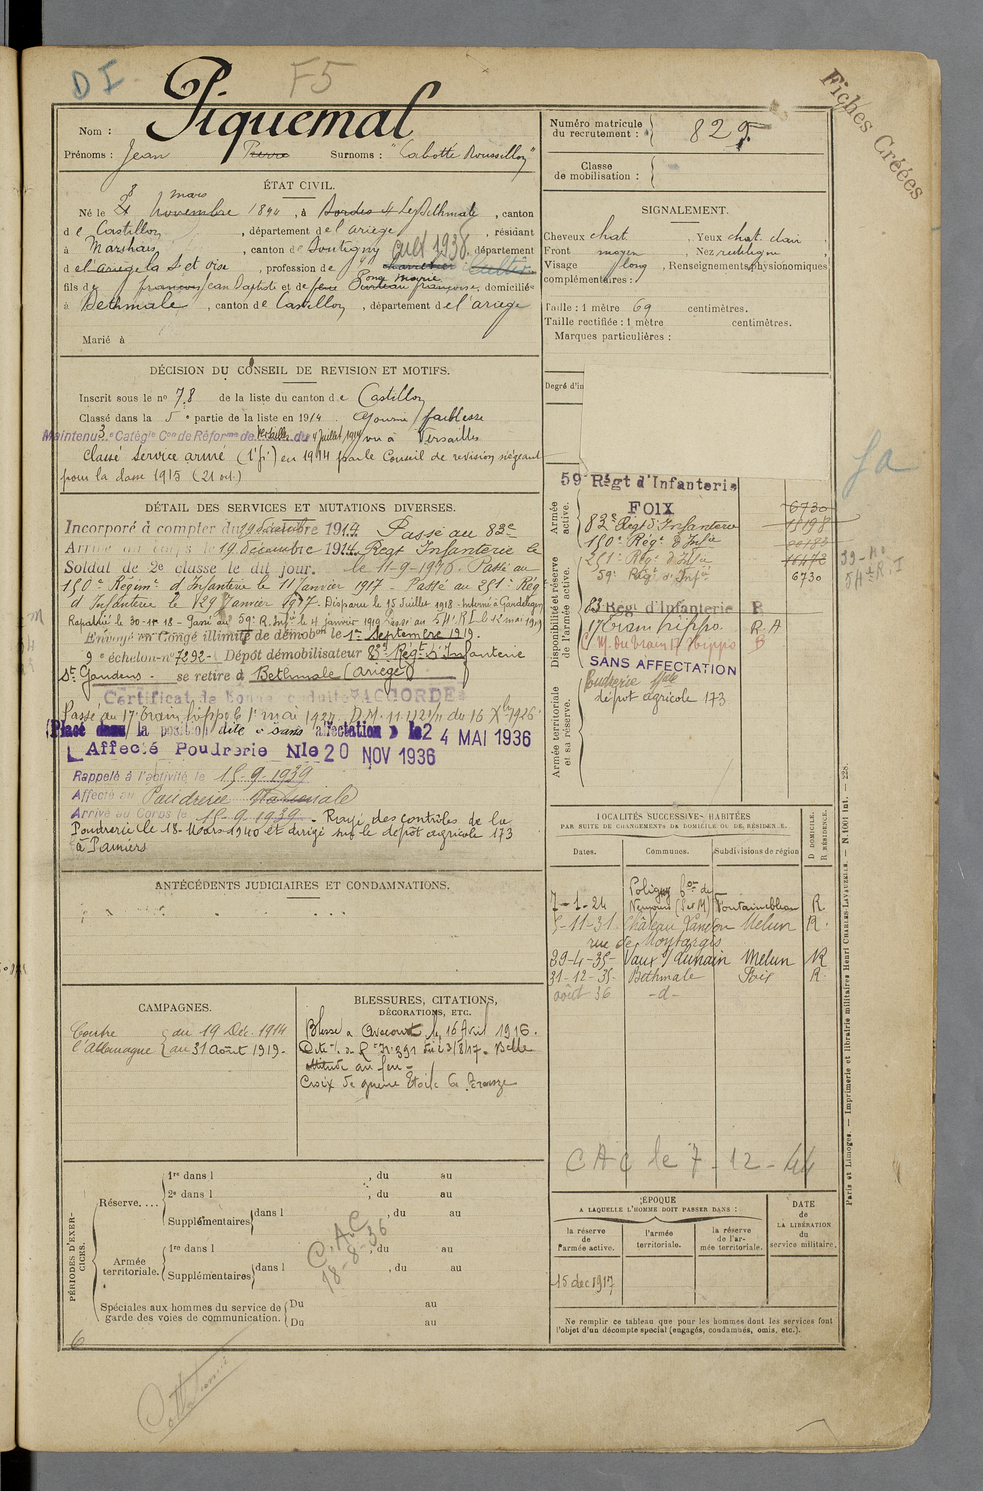 DI
F5
Fiches Créées
Nom : Piquemal
Prénoms : Jean Pierre Surnoms : "Cabotte Roussillon"
Numéro matricule
du recrutement : 825
Classe
de mobilisation :
ÉTAT CIVIL.
8 mars
Né le novembre 1894, à Bordes s/ Lez Bethmale, canton
de Castillon, département de l'ariège, résidant
à Marchais, canton de Boutigny, département
de l'ariège la S. et oise, profession de Cultiv.
Cult 1938
fils de françois Jean Baptiste et de marie françoise, domiciliés
à Bethmale, canton de Castillon, département de l'ariège
Marié à
SIGNALEMENT.
Cheveux chat. , Yeux chat. clair ,
Front moyen , Nez rectiligne ,
Visage long , Renseignements physionomiques
complémentaires :
Taille : 1 mètre 69 centimètres.
Taille rectifiée : 1 mètre centimètres.
Marques particulières :
Degré d'in
DÉCISION DU CONSEIL DE REVISION ET MOTIFS.
Inscrit sous le no 78 de la liste du canton de Castillon
Classé dans la 5e partie de la liste en 1914. Ajourné faiblesse
Maintenu 3e Catégie Con de Réforme de Versailles du Juillet 1919 vu à Versailles
Classé Service armé en 1914 par le Conseil de revision siégeant
pour la classe 1915 (21 oct.)
DÉTAIL DES SERVICES ET MUTATIONS DIVERSES.
Incorporé à compter du 19 décembre 1914. Passé au 83e
Arrivé au corps le 19 décembre 1914. Regt Infanterie le
Soldat de 2e classe le dit jour. le 11-9-1916. Passé au
150e Régimt d'Infanterie le 11 Janvier 1917 - Passé au 251e Rég
d'Infanterie le 29 Janvier 1917. Disparu le 15 Juillet 1918 - Interné à Gardelegen
Rapatrié le 30-11-18 - Passé au 59e R. Infie le 4 janvier 1919 Passé au 54e R.I. le 12 mai 1919
Envoyé en Congé illimité de démobon le 1er Septembre 1919.
9e échelon-no 7292- Dépôt démobilisateur 83e Régt d'Infanterie
St Gaudens. se retire à Bethmale (Ariège)
Certificat de bonne conduite "ACCORDÉ"
Passé au 17e train hippo le 1er mai 1927. D.M. 11.112 1/11 du 16 Xbre 1926
Placé dans la position dite « sans affectation » le 24 MAI 1936
Affecté Poudrerie Nle 20 NOV 1936
Rappelé à l'activité le 15.9.1939
Affecté au Poudrerie Nationale
Arrivé au Corps le 15.9.1939. Rayé des contrôles de la
Poudrerie le 18 Mars 1940 et dirigé sur le dépôt agricole 173
à Pamiers
59 Régt d'Infanterie
FOIX
6730
83e Régt d'Infanterie
150e Régt d'Infie
251e Régt d'Infie
59e Régt d'Infie
6730
83 Régt d'Infanterie R
17e Train hippo R.A
C/M. du train 17 Hippo B
SANS AFFECTATION
Poudrerie Nle
dépôt agricole 173
Armée
active.
Disponibilité et réserve
de l'armée active.
Armée territoriale
et sa réserve.
54e R.I
LOCALITÉS SUCCESSIVES HABITÉES
PAR SUITE DE CHANGEMENTS DE DOMICILE OU DE RÉSIDENCE.
Dates. Communes. Subdivisions de région
D DOMICILE.
R RÉSIDENCE.
7-1-24 Poligny con de Nemours (S et M) Fontainebleau R
5-11-31. Château Landon Melun R.
rue de Montargis
29-4-35- Vaux s/ Lunain Melun R
31-12-35. Bethmale Foix R
août 36 -d-
CAC le 7-12-44
ANTÉCÉDENTS JUDICIAIRES ET CONDAMNATIONS.
CAMPAGNES.
Contre du 19 Déc. 1914
l'Allemagne au 31 Août 1919.
BLESSURES, CITATIONS,
DÉCORATIONS, ETC.
Blessé à Avocourt le 16 Avril 1916.
Cité 23/8/17. Belle
attitude au feu.
Croix de guerre Étoile de Bronze
PÉRIODES D'EXERCICES.
Réserve....
1re dans l , du au
2e dans l , du au
Supplémentaires dans l , du au
Armée
territoriale.
1re dans l , du au
Supplémentaires dans l , du au
C.A.C
18-8-36
Spéciales aux hommes du service de
garde des voies de communication.
Du au
Du au
ÉPOQUE
A LAQUELLE L'HOMME DOIT PASSER DANS :
la réserve
de
l'armée active.
l'armée
territoriale.
la réserve
de l'ar-
mée territoriale.
DATE
de
LA LIBÉRATION
du
service militaire.
15 dec 1917
Ne remplir ce tableau que pour les hommes dont les services font
l'objet d'un décompte spécial (engagés, condamnés, omis, etc.).
Paris et Limoges. — Imprimerie et librairie militaires Henri CHARLES-LAVAUZELLE. — N. 1691 Int. — 228.
6